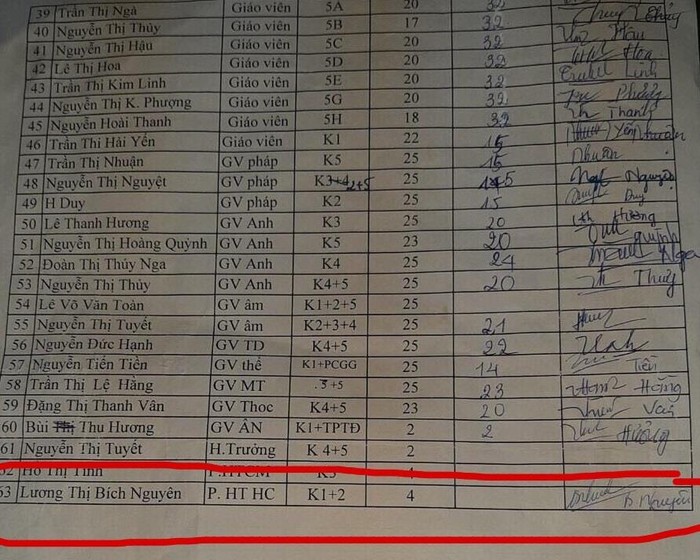 39 Trần Thị Ngà Giáo viên 5A 20 32
40 Nguyễn Thị Thủy Giáo viên 5B 17 32 Thủy
41 Nguyễn Thị Hậu Giáo viên 5C 20 32 Hậu
42 Lê Thị Hoa Giáo viên 5D 20 32 Hoa
43 Trần Thị Kim Linh Giáo viên 5E 20 32 Linh
44 Nguyễn Thị K. Phượng Giáo viên 5G 20 32 Phượng
45 Nguyễn Hoài Thanh Giáo viên 5H 18 32 Thanh
46 Trần Thị Hải Yến Giáo viên K1 22 15 Yến
47 Trần Thị Nhuận GV pháp K5 25 15 Nhuận
48 Nguyễn Thị Nguyệt GV pháp K3+4 2+5 25 15 Nguyệt
49 H Duy GV pháp K2 25 15 Duy
50 Lê Thanh Hương GV Anh K3 25 20 Hương
51 Nguyễn Thị Hoàng Quỳnh GV Anh K5 23 20 Quỳnh
52 Đoàn Thị Thúy Nga GV Anh K4 25 24 Nga
53 Nguyễn Thị Thủy GV Anh K4+5 25 20 Thủy
54 Lê Võ Văn Toàn GV âm K1+2+5 25
55 Nguyễn Thị Tuyết GV âm K2+3+4 25 21
56 Nguyễn Đức Hạnh GV TD K4+5 25 22
57 Nguyễn Tiến Tiền GV thể K1+PCGG 25 14 Tiền
58 Trần Thị Lệ Hằng GV MT 3+5 25 23 Hằng
59 Đặng Thị Thanh Vân GV Thoc K4+5 23 20 Vân
60 Bùi Thu Hương GV ÂN K1+TPTĐ 2 2 Hương
61 Nguyễn Thị Tuyết H.Trưởng K 4+5 2
62 Hồ Thị Tình P.HTCM K3 4
63 Lương Thị Bích Nguyên P. HT HC K1+2 4 B. Nguyên